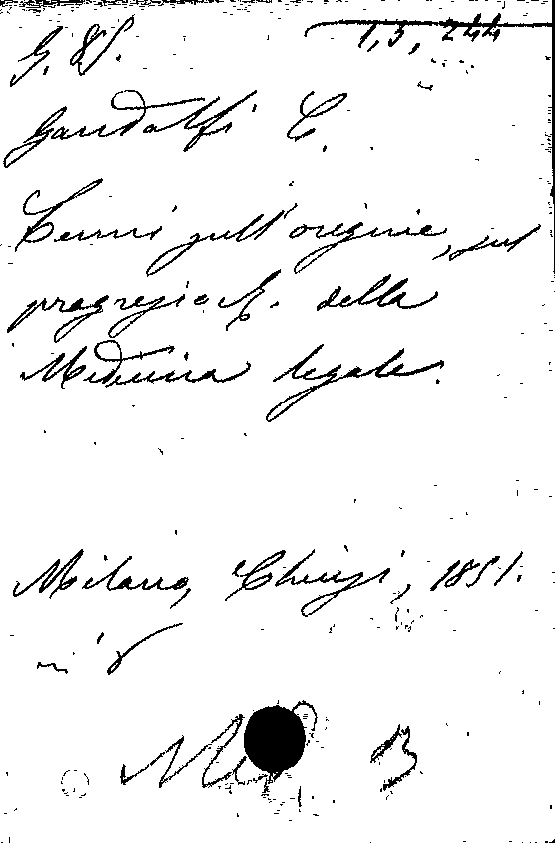 G. VS. 1, 3, 244
Gandolfi C.
Cenni sull'origine, sul
progresso &. della
Medicina legale.
Milano, Chiusi, 1851.
in 8
Med B